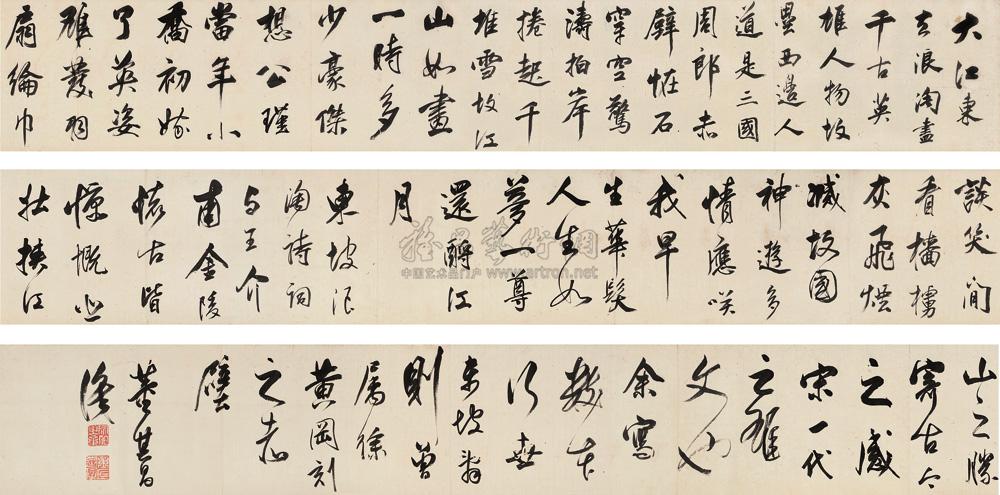 大江東
去浪淘盡
千古英
雄人物故
壘西邊人
道是三國
周郎赤
壁怪石
穿空驚
濤拍岸
捲起千
堆雪故江
山如畫
一時多
少豪傑
想公瑾
當年小
喬初嫁
了英姿
雄發羽
扇綸巾
談笑間
看檣櫓
灰飛煙
滅故國
神遊多
情應咲
我早
生華髮
人生如
夢一尊
還酹江
月
東坡浪
淘詩詞
与王介
甫金陵
懷古皆
慷慨悲
壯挾江
山之勝
寄古今
之感
宋一代
之雄
文也
余寫
數本
行世
東坡翁
則曾
屬徐
黃岡刻
之赤
壁
董其昌
雅昌藝術網
中国艺术品门户 www.artron.net